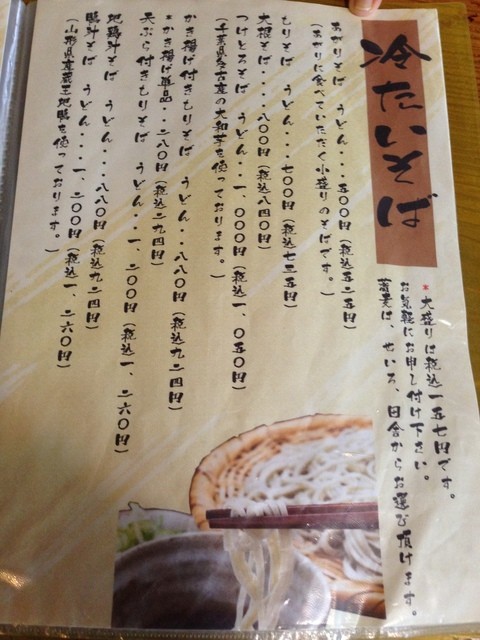 冷たいそば
*大盛りは税込一五七円です。
お気軽にお申し付け下さい。
蕎麦は、せいろ、田舎からお選び頂けます。
あがりそば・・・五〇〇円(税込五二五円)
(あがりに食べていただく小盛りのそばです。)
もりそば うどん・・・七〇〇円(税込七三五円)
大根そば・・・・八〇〇円(税込八四〇円)
つけとろそば うどん・・・一、〇〇〇円(税込一、〇五〇円)
(千葉県多古産の大和芋を使っております。)
かき揚げ付きもりそば うどん・・八八〇円(税込九二四円)
*かき揚げ単品・・・二八〇円(税込二九四円)
天ぷら付きもりそば うどん・・一、二〇〇円(税込一、二六〇円)
地鶏汁そば うどん・・・八八〇円(税込九二四円)
鴨汁そば うどん・・・一、二〇〇円(税込一、二六〇円)
(山形県産蔵王地鴨を使っております。)